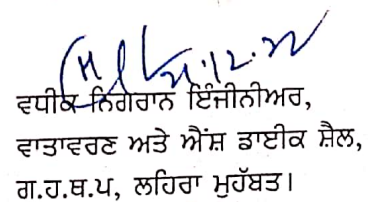 ਵਧੀਕ ਨਿਗਰਾਨ ਇੰਜੀਨੀਅਰ,
ਵਾਤਾਵਰਣ ਅਤੇ ਐਂਸ਼ ਡਾਈਕ ਸ਼ੈਲ,
ਗ.ਹ.ਥ.ਪ, ਲਹਿਰਾ ਮੁਹੱਬਤ।